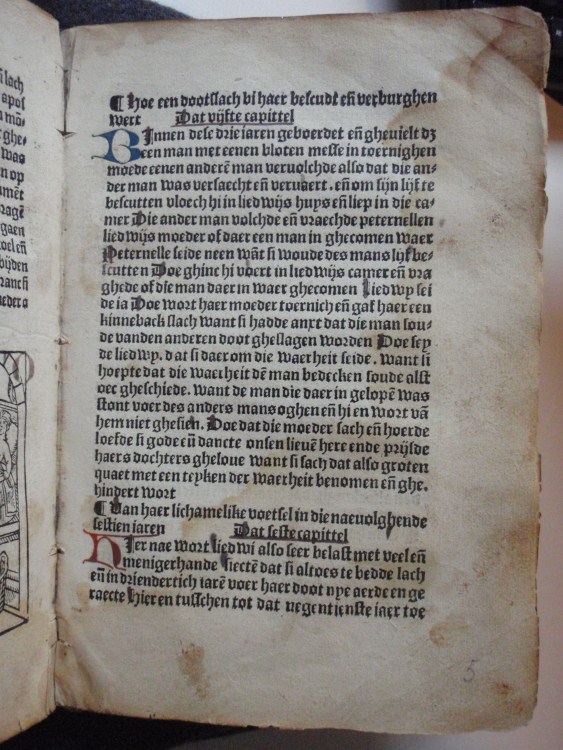 n̄ lach
apos
mō-
ghe-
was
en op
mēt
ragē
gaen
oel en̄
bijden
rancn̄
eder o
¶ Hoe een dootslach bi haer bescudt en̄ verburghen
wert Dat vijfte capittel
BInnen dese drie iaren geboerdet en̄ ghevielt dz
een man met eenen bloten messe in toernighen
moede eenen anderē man veruolchde also dat die an-
der man was versaecht en̄ veruaert. en̄ om sijn lijf te
bescutten vloech hi in liedwijs huys en̄ liep in die ca-
mer Die ander man volchde en̄ vraechde peternellen
liedwijs moeder of daer een man in ghecomen waer
Peternelle seide neen wāt si woude des mans lijf be-
scutten Doe ghinc hi voert in liedwijs camer en̄ vra
ghede of die man daer in waer ghecomen Liedwy sei
de ia Doe wort haer moeder toernich en̄ gaf haer een
kinneback slach want si hadde anxt dat die man sou-
de vanden anderen doot gheslagen worden Doe sey
de liedwy. dat si daer om die waerheit seide. want si
hoepte dat die waerheit dē man bedecken soude alst
oec gheschiede. want de man die daer in gelopē was
stont voer des anders mans oghen en̄ hi en wort vā
hem niet ghesien. Doe dat die moeder sach en̄ hoerde
loefde si gode en̄ dancte onsen lieuē here ende prijsde
haers dochters gheloue want si sach dat also groten
quaet met een teyken der waerheit benomen en̄ ghe-
hindert wort
¶ Van haer lichamelike voetsel in die naeuolghende
sestien iaren Dat seste capittel
HIer nae wort liedwi also seer belast met veel en̄
menigerhande siectē dat si altoes te bedde lach
en̄ in driendertich iarē voer haer doot nye aerde en ge
raecte Hier en tusschen tot dat negentienste iaer toe
5